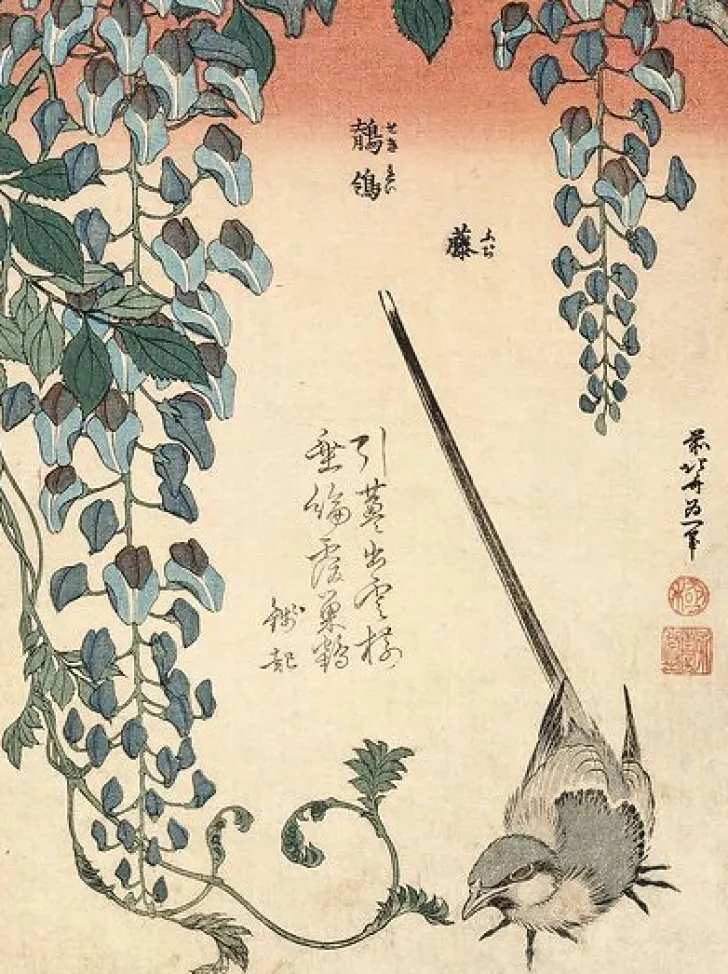 鶺鴒
せきれい
藤
ふぢ
引蔓出雲樹
垂綸覆巣鶴
錢起
前北斎為一筆